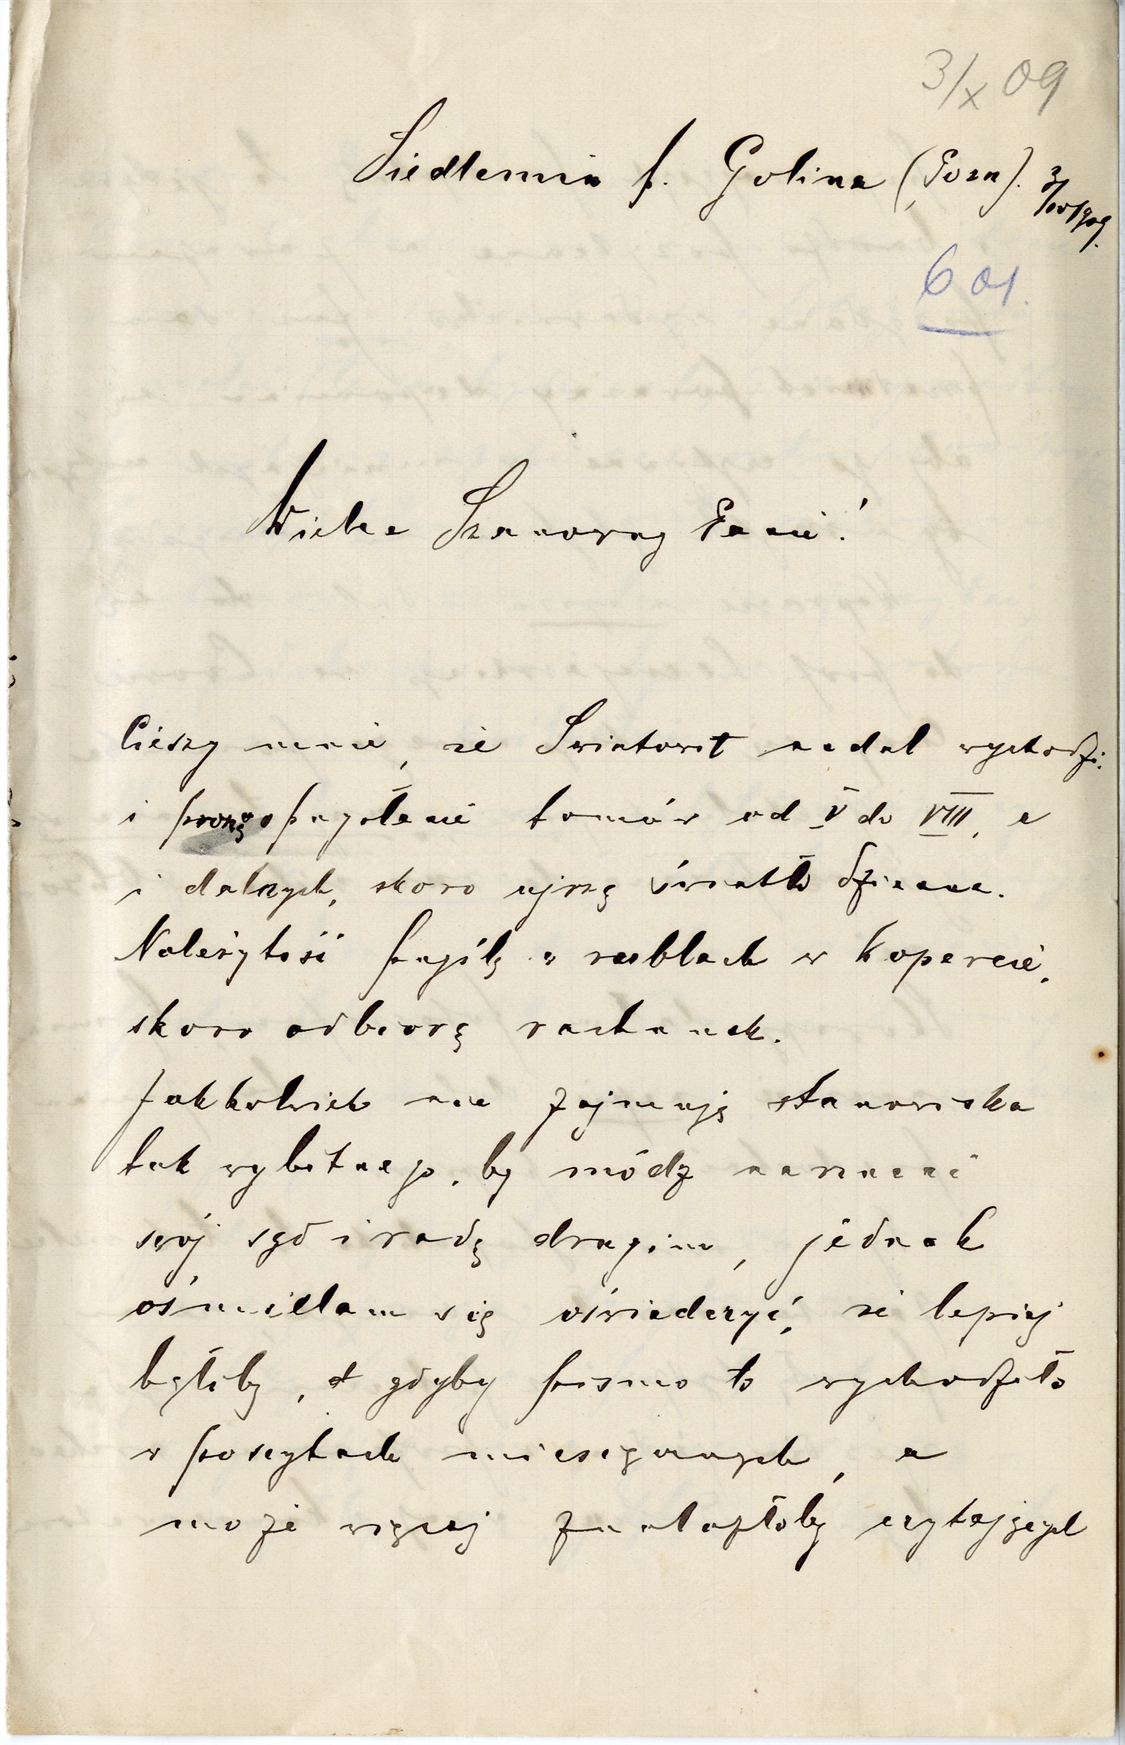 3/X 09
Siedlemin p. Golina (Pozn). 3/10 1909.
601.
Wielce Szanowny Panie!
Cieszy mnie, że Swiatowit nadal wychodzi:
i proszę o przysłanie tomów od V do VIII, a
i dalszych, skoro ujrzą światło dzienne.
Należytość prześlę w rublach w kopercie,
skoro odbiorę rachunek.
Jakkolwiek nie zajmuję stanowiska
tak wybitnego, by módz narzucać
swój sąd i radę drugim, jednak
ośmielam się oświadczyć, że lepiej
byłoby, gdyby pismo to wychodziło
w poszytach miesięcznych, a
może więcej znalazłoby czytających